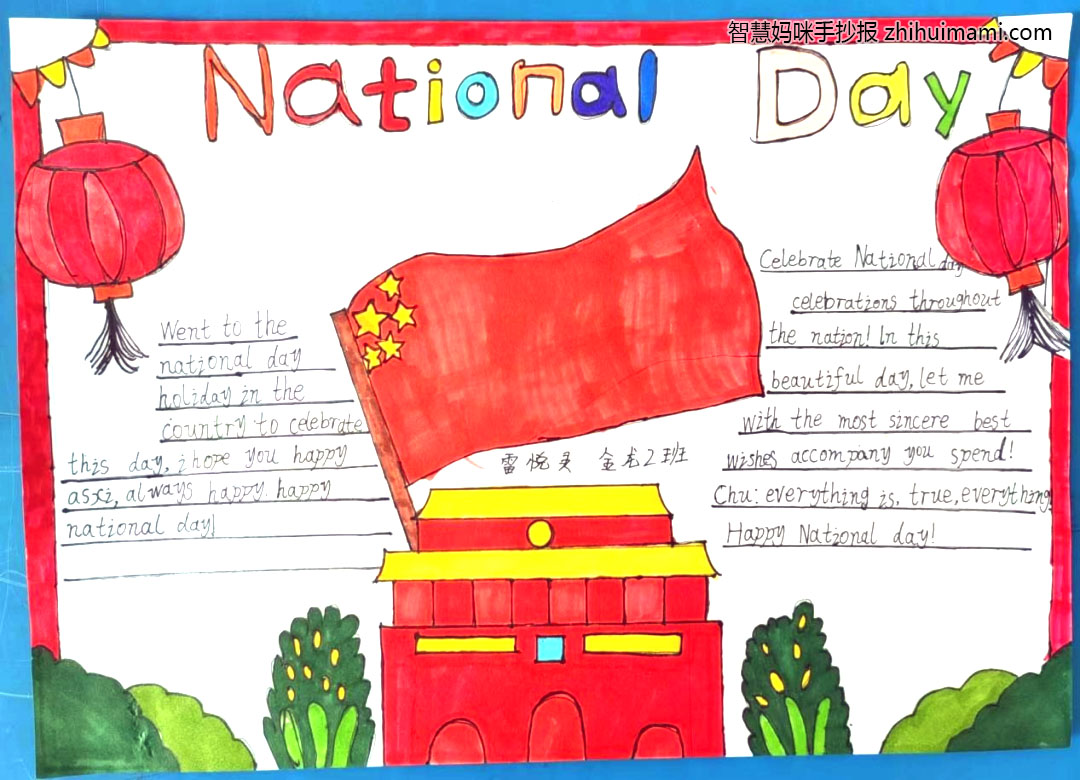 智慧妈咪手抄报 zhihuimami.com
National Day
Went to the
national day
holiday in the
country to celebrate
this day, i hope you happy
asxi, always happy. happy
national day!
Celebrate National day
celebrations throughout
the nation! In this
beautiful day, let me
with the most sincere best
wishes accompany you spend!
Chu: everything is, true, everything!
Happy National day!
雷悦灵 金龙2班